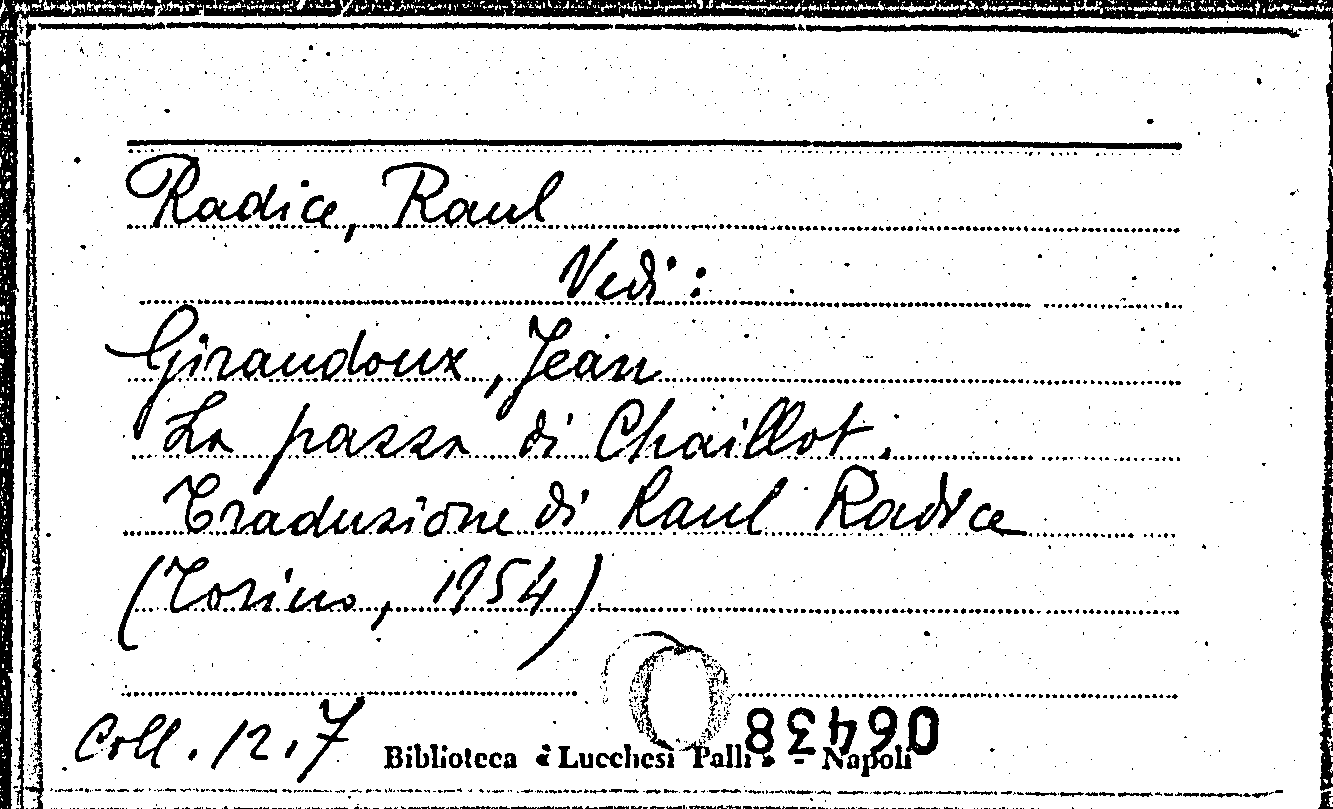 Radice, Raul
Vedi:
Giraudoux, Jean
La pazza di Chaillot.
Traduzione di Raul Radice
(Torino, 1954)
Coll. 12.7
06438
Biblioteca « Lucchesi Palli » - Napoli